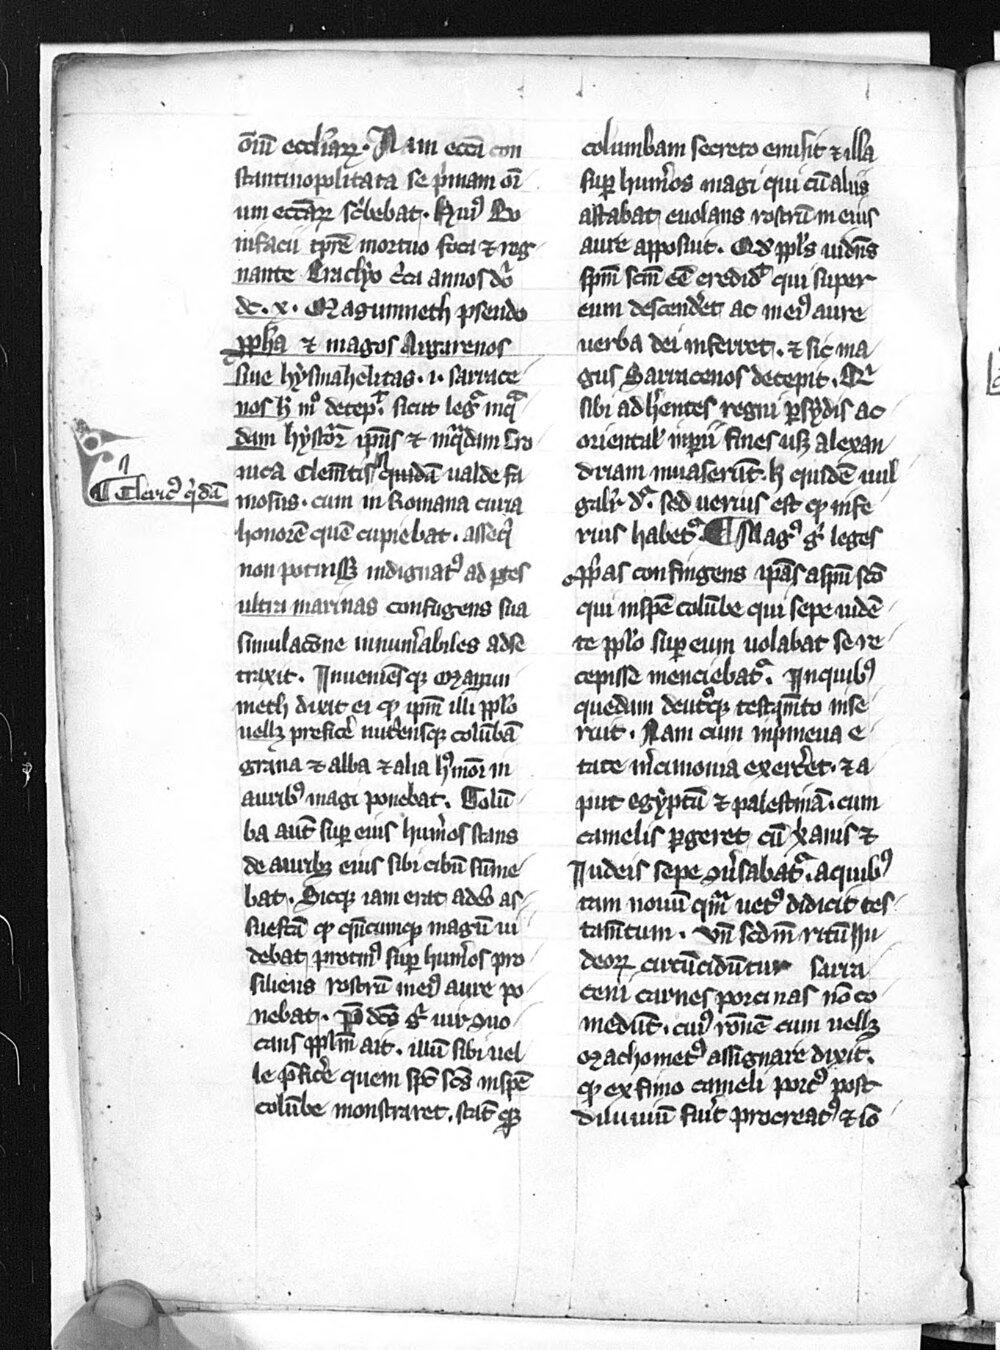 om̄iū eccl̄iaꝝ. Nam eccā con
stantinopolitata se p̄mam om̄i
um eccāꝝ sc̄bebat. Huiꝰ Bo
nifacii tp̄re mortuo foca ⁊ reg
nante Eraclẏo c̄ca annos dn̄i
dc.x. Magumeth pseudo
ꝓph̄a ⁊ magos Agarenos
siue hẏsmahelitas .i. sarrace
nos h̄ mͦ decep̄. sicut legr̄ in qͣ
dam hẏstor̄ ip̄ius ⁊ in qͣdam cro
nica Clemētis quidā ualde fa
Cleric̄ꝰ qͥdā
mosus. cum in Romana curia
honorē quē cupiebat. asseqͥ
non potuiss̄ indignatꝰ ad ꝑtes
ultra marinas confugens sua
simulac̄one innum̄abiles ad se
traxit. Inueniēsqꝫ Magum
meth dixit ei ꝙ ip̄m illi ppl̄o
uellꝫ prefic̄e nut̄ensqꝫ colūbā
grana ⁊ alba ⁊ alia hꝰmōi in
auribꝰ magi ponebat. Colū
ba aut̄ suꝑ eius hum̄os stans
de auribꝫ eius sibi cibū sume
bat. Sicqꝫ iam erat adeo as
suefcā ꝙ qn̄cumqꝫ magū ui
debat protinꝰ suꝑ hum̄os pro
siliens rostrū in eiꝰ aure po
nebat. P̄dcūs gͦ uir ꝯuo
cans ppl̄m ait. illū sibi uel
le p̄fic̄e quem sp̄c scūs in spē
colūbe monstraret. statīqꝫ
columbam secreto emisit ⁊ illa
suꝑ hum̄os magi qui cū aliis
astabat euolans rostrū in eius
aure apposuit. Qd̄ ppl̄s uidn̄s
sp̄m scm̄ eē credid̄ qui super
eum descend̄et ac in eiꝰ aure
uerba dei inferret. ⁊ sic ma
gus Sarracenos decepit. Qr̄
sibi adh̄entes regni ꝑsẏdis ac
oriental̄ inp̄ii fines usqꝫ alexan
driam inuaserūt. h̄ quidē uul
galr̄ dr̄. sed uerius est ꝙ infe
rius habetr̄. Magꝰ gͦ leges
ꝓp̄as confingens ip̄as a sp̄u scō
qui in spē colūbe qui sepe uidē
te ppl̄o suꝑ eum uolabat se re
cepisse menciebatr̄. In quibꝰ
quedam de utͦqꝫ testam̄to inse
ruit. Nam cum in p̄meua e
tate m̄cimonia exerc̄et. ⁊ a
put egẏptū ⁊ palestinā. cum
camelis ꝑgeret cū x̄anis ⁊
Iudeis sepe ꝯu̅sabatr̄. a quibꝰ
tam nouū qm̄ uetꝰ didicit tes
tam̄tum. Vn̄ scd̄m ritū Iu
deoꝝ circūcidūtur sarra
ceni carnes porcinas nō co
medūt. cuiꝰ rōnem cum uellꝫ
Machometꝰ assignare dixit.
ꝙ ex fimo cameli porcꝰ post
diluuiū fuit procreatꝰ ⁊ iō